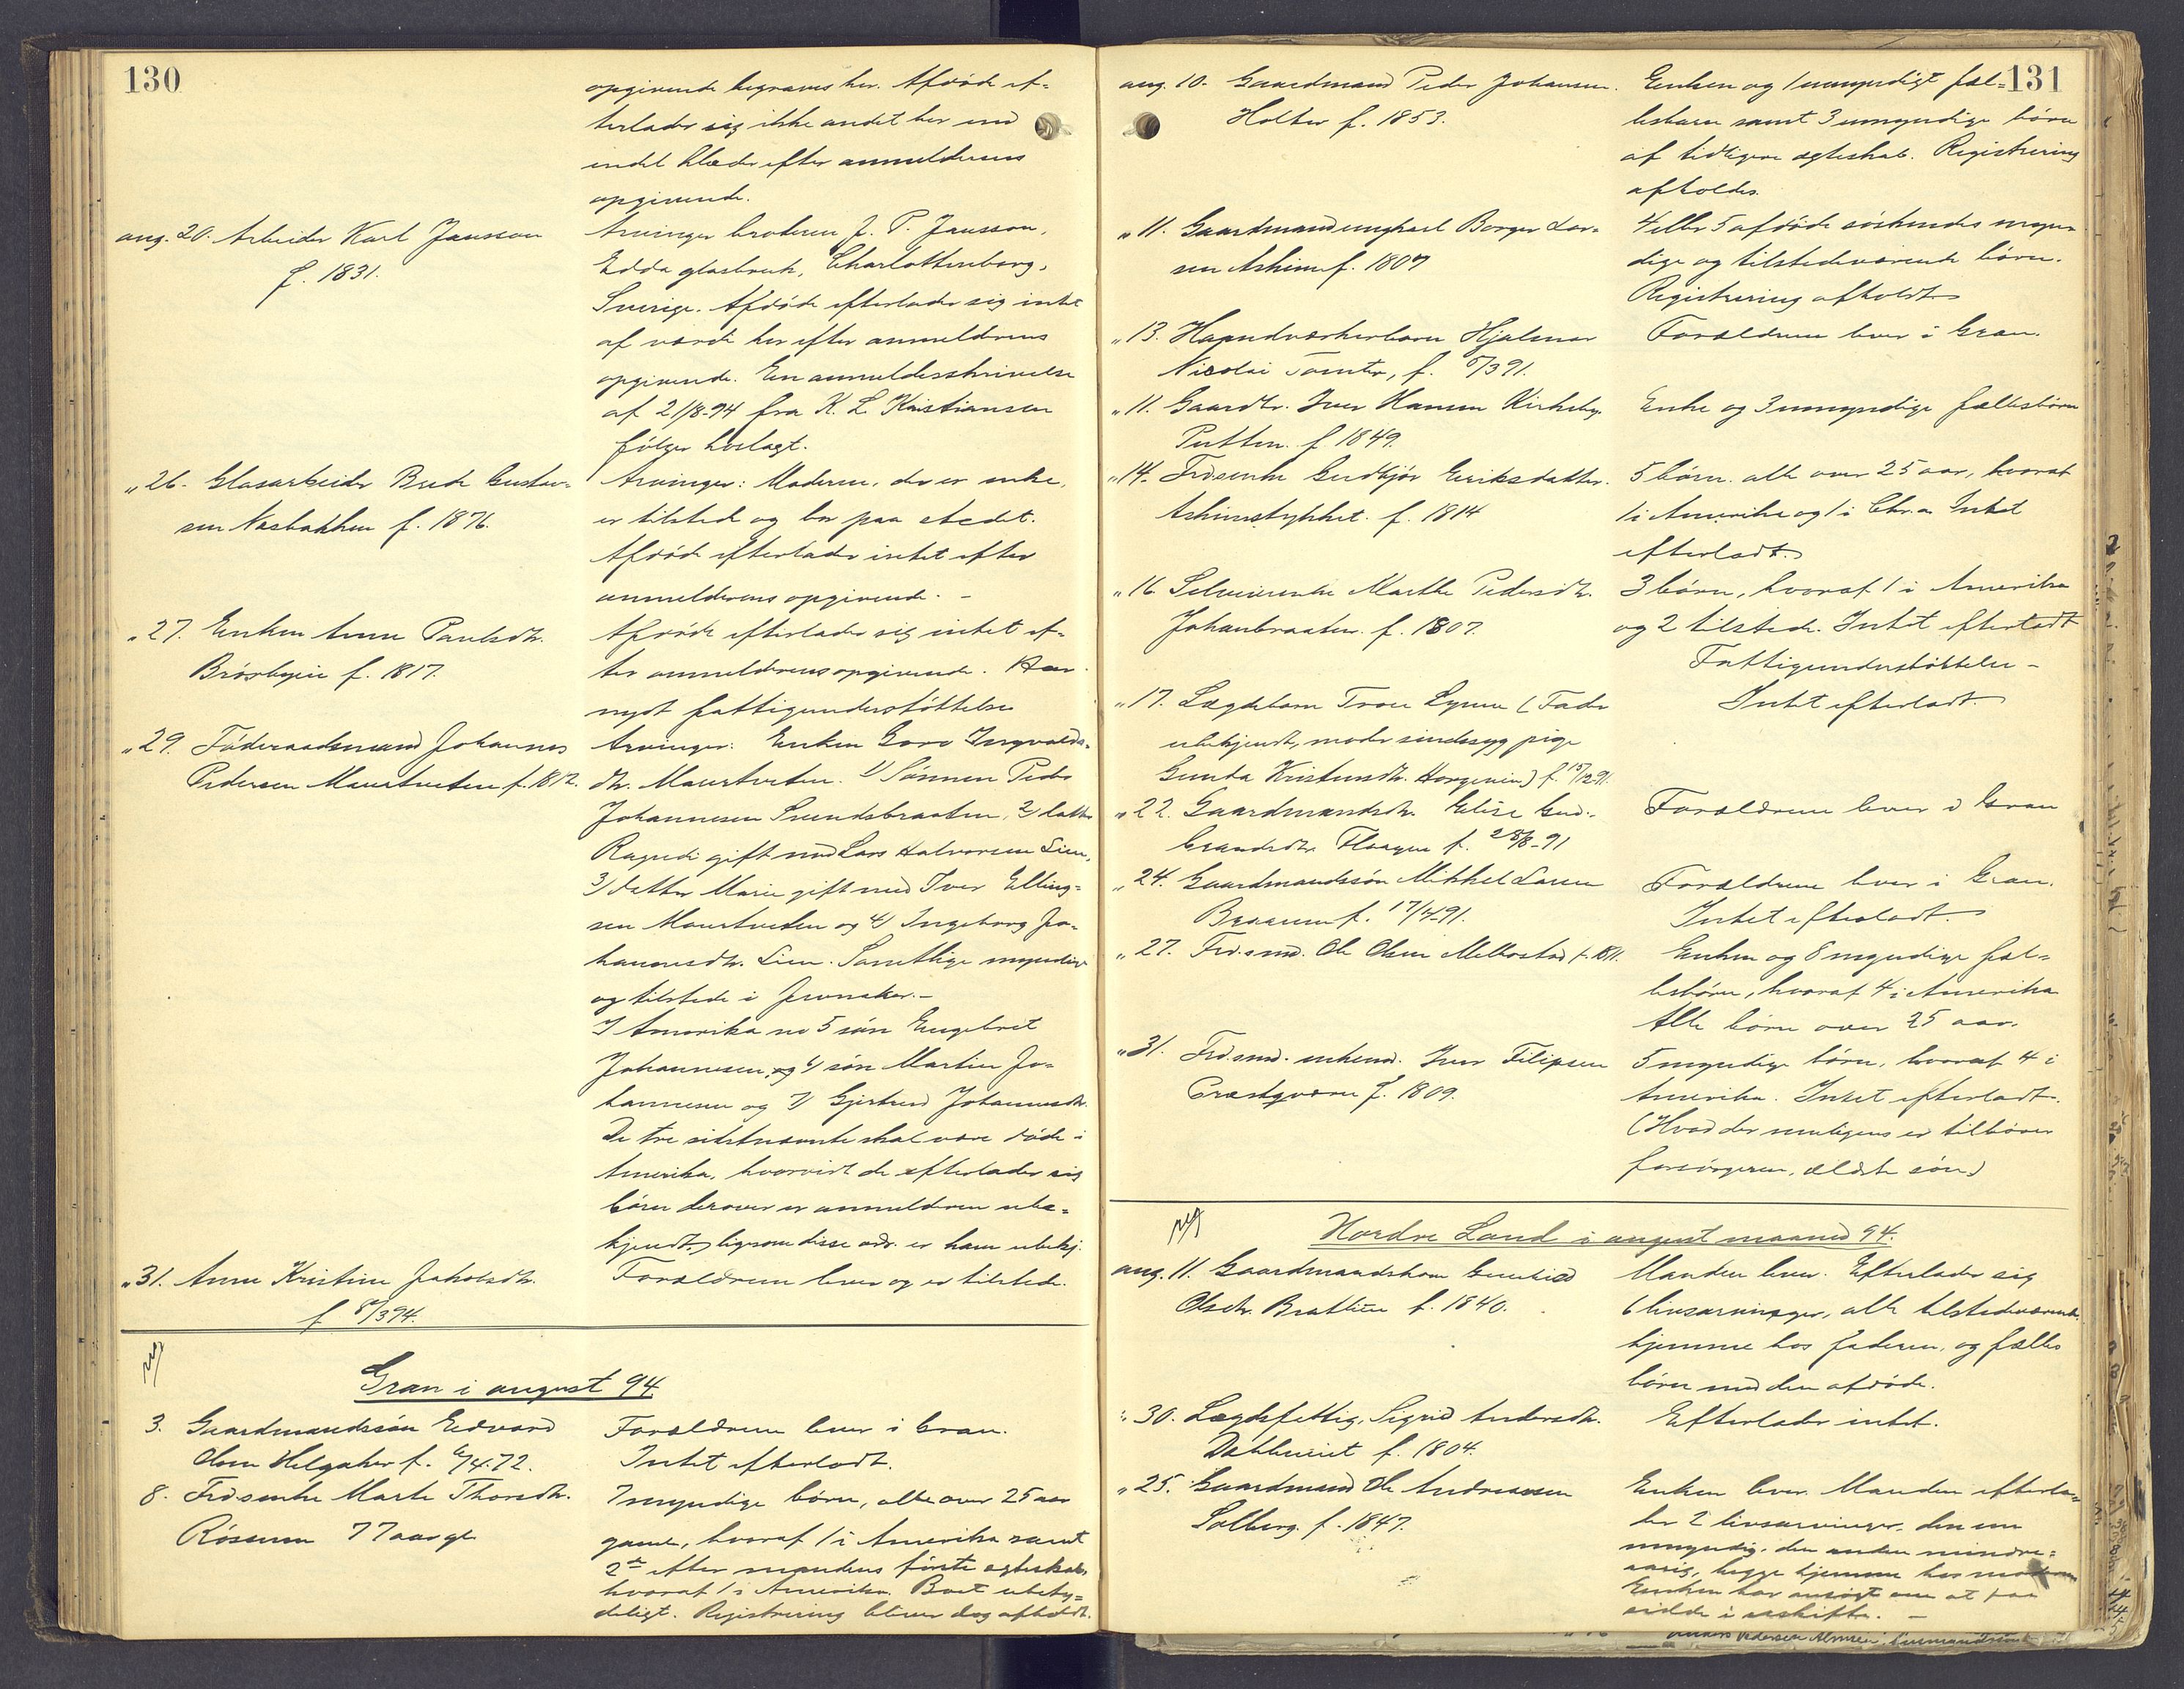 130
opgivende begraves her. Afdöde ef-
terlader sig ikke andet her end
endel klæder efter anmelderens
opgivende.
aug. 20. Arbeider Karl Jansson
f. 1831.
Arvinger broderen J. P. Jansson,
Edda glasbruk, Charlottenborg,
Sverige. Afdöde efterlader sig intet
af værdi her efter anmelderens
opgivende. En anmeldesskrivelse
af 21/8-94 fra K. L. Kristiansen
fölger hoslagt.
" 26. Glasarbeider Brede Gustav-
sen Næsbakken f. 1876.
Arvinger: Moderen, der er enke,
er tilstede og bor paa stedet.
Afdöde efterlader intet efter
anmelderens opgivende. -
" 27. Enken Anne Paulsdtr.
f. 1817.
Afdöde efterlader sig intet ef-
ter anmelderens opgivende. Har
nydt fattigunderstöttelse
" 29. Föderaadsmand Johannes
Pedersen Maurtveten f. 1812.
Arvinger: Enken Goro Ingvalds-
dtr. Maurtveten. 1) Sönnen Peder
Johannesen Svendsbraaten, 2) datter
Ragndi gift med Lars Halvorsen Lien,
3) datter Marie gift med Iver Elling-
sen Maurtveten og 4) Ingeborg Jo-
hannesdtr. Lien. Samtlige myndige
og tilstede i Jevnaker. -
I Amerika no 5 sön Engebret
Johannesen, og 6) sön Martin Jo-
hannesen og 7) Gjertrud Johannesdtr.
De tre sidstnævnte skal være döde i
Amerika, hvorvidt de efterlader sig
börn derover er anmelderen ube-
kjendt, ligesom disse adr. er ham ubekj.
" 31. Anne Kristine Jakobsdtr.
f 8/3 94.
Forældrene lever og er tilstede.
Gran i august 94
3. Gaardmandssön Edvard
Olsen Helgaker f. 6/4.72.
Forældrene lever i Gran.
Intet efterladt.
8. Frdsenke Marte Thorsdtr.
Rössum 77 aar gl.
7 myndige börn, alle over 25 aar
gamle, hvoraf 1 i Amerika samt
2de efter mandens förste egteskab,
hvoraf 1 i Amerika. Boet ubety-
deligt. Registrering bliver dog afholdt.
131
aug. 10. Gaardmand Peder Johansen
Holter f. 1853.
Enken og 1 umyndigt fæl-
lesbarn samt 3 umyndige börn
af tidligere egteskab. Registrering
afholdes.
" 11. Gaardmandsungkarl Borger Lar-
sen Askim f. 1807
4 eller 5 afdöde söskendes myn-
dige og tilstedeværende börn.
Registrering afholdt
" 13. Haandværkerbarn Hjalmar
Nicolai Tomter, f. /3 91.
Forældrene lever i Gran.
" 11. Gaardbr. Iver Hansen Kirkeby
Putten. f. 1849.
Enke og 3 umyndige fællesbörn
" 14. Frdsenke Gudbjör Eriksdatter
Askimstykket. f. 1814
5 börn alle over 25 aar, hvoraf
1 i Amerika og 1 i Chr.a Intet
efterladt.
" 16. Selveierenke Marthe Pedersdtr.
Johanbraaten. f. 1807.
3 börn, hvoraf 1 i Amerika
og 2 tilstede. Intet efterladt
Fattigunderstöttelse -
" 17. Lægdebarn (Fader
ubekjendt, moder sindssyg pige
Gunda Kristensdtr. Horgeneie) f. 15/12 91.
Intet efterladt.
" 22. Gaardmandsdtr. Elise Gud-
brandsdtr. Flaagen f. 28/8-91
Forældrene lever i Gran
" 24. Gaardmandssön Mikkel Larsen
f. 17/4-91.
Forældrene lever i Gran.
Intet efterladt.
" 27. Frdsmd. Ole Olsen Melbostad f. 1811.
Enken og 8 myndige fæl-
lesbörn, hvoraf 4 i Amerika
Alle börn over 25 aar.
" 31. Frdsmd. enkemd. Iver Filipsen
Præstqværn f. 1809.
5 myndige börn, hvoraf 4 i
Amerika. Intet efterladt.
(Hvad der muligens er tilhörer
forsörgeren, ældste sön.)
Nordre Land i august maaned 94.
aug. 11. Gaardmandskone Gunhild
Olsdtr. Bratlien f. 1840.
Manden lever. Efterlader sig
6 livsarvinger, alle tilstedeværende
hjemme hos faderen, og fælles
börn med den afdöde.
" 30. Lægdsfattig. Sigrid Andersdtr.
f. 1804.
Efterlader intet.
" 25. Gaardmand Ole Andreassen
Solberg. f. 1847.
Enken lever. Manden efterla-
der 2 livsarvinger, den ene
myndig, den anden mindre-
aarig, begge hjemme hos moderen
Enken har ansögt om at faa
sidde i uskifte. -